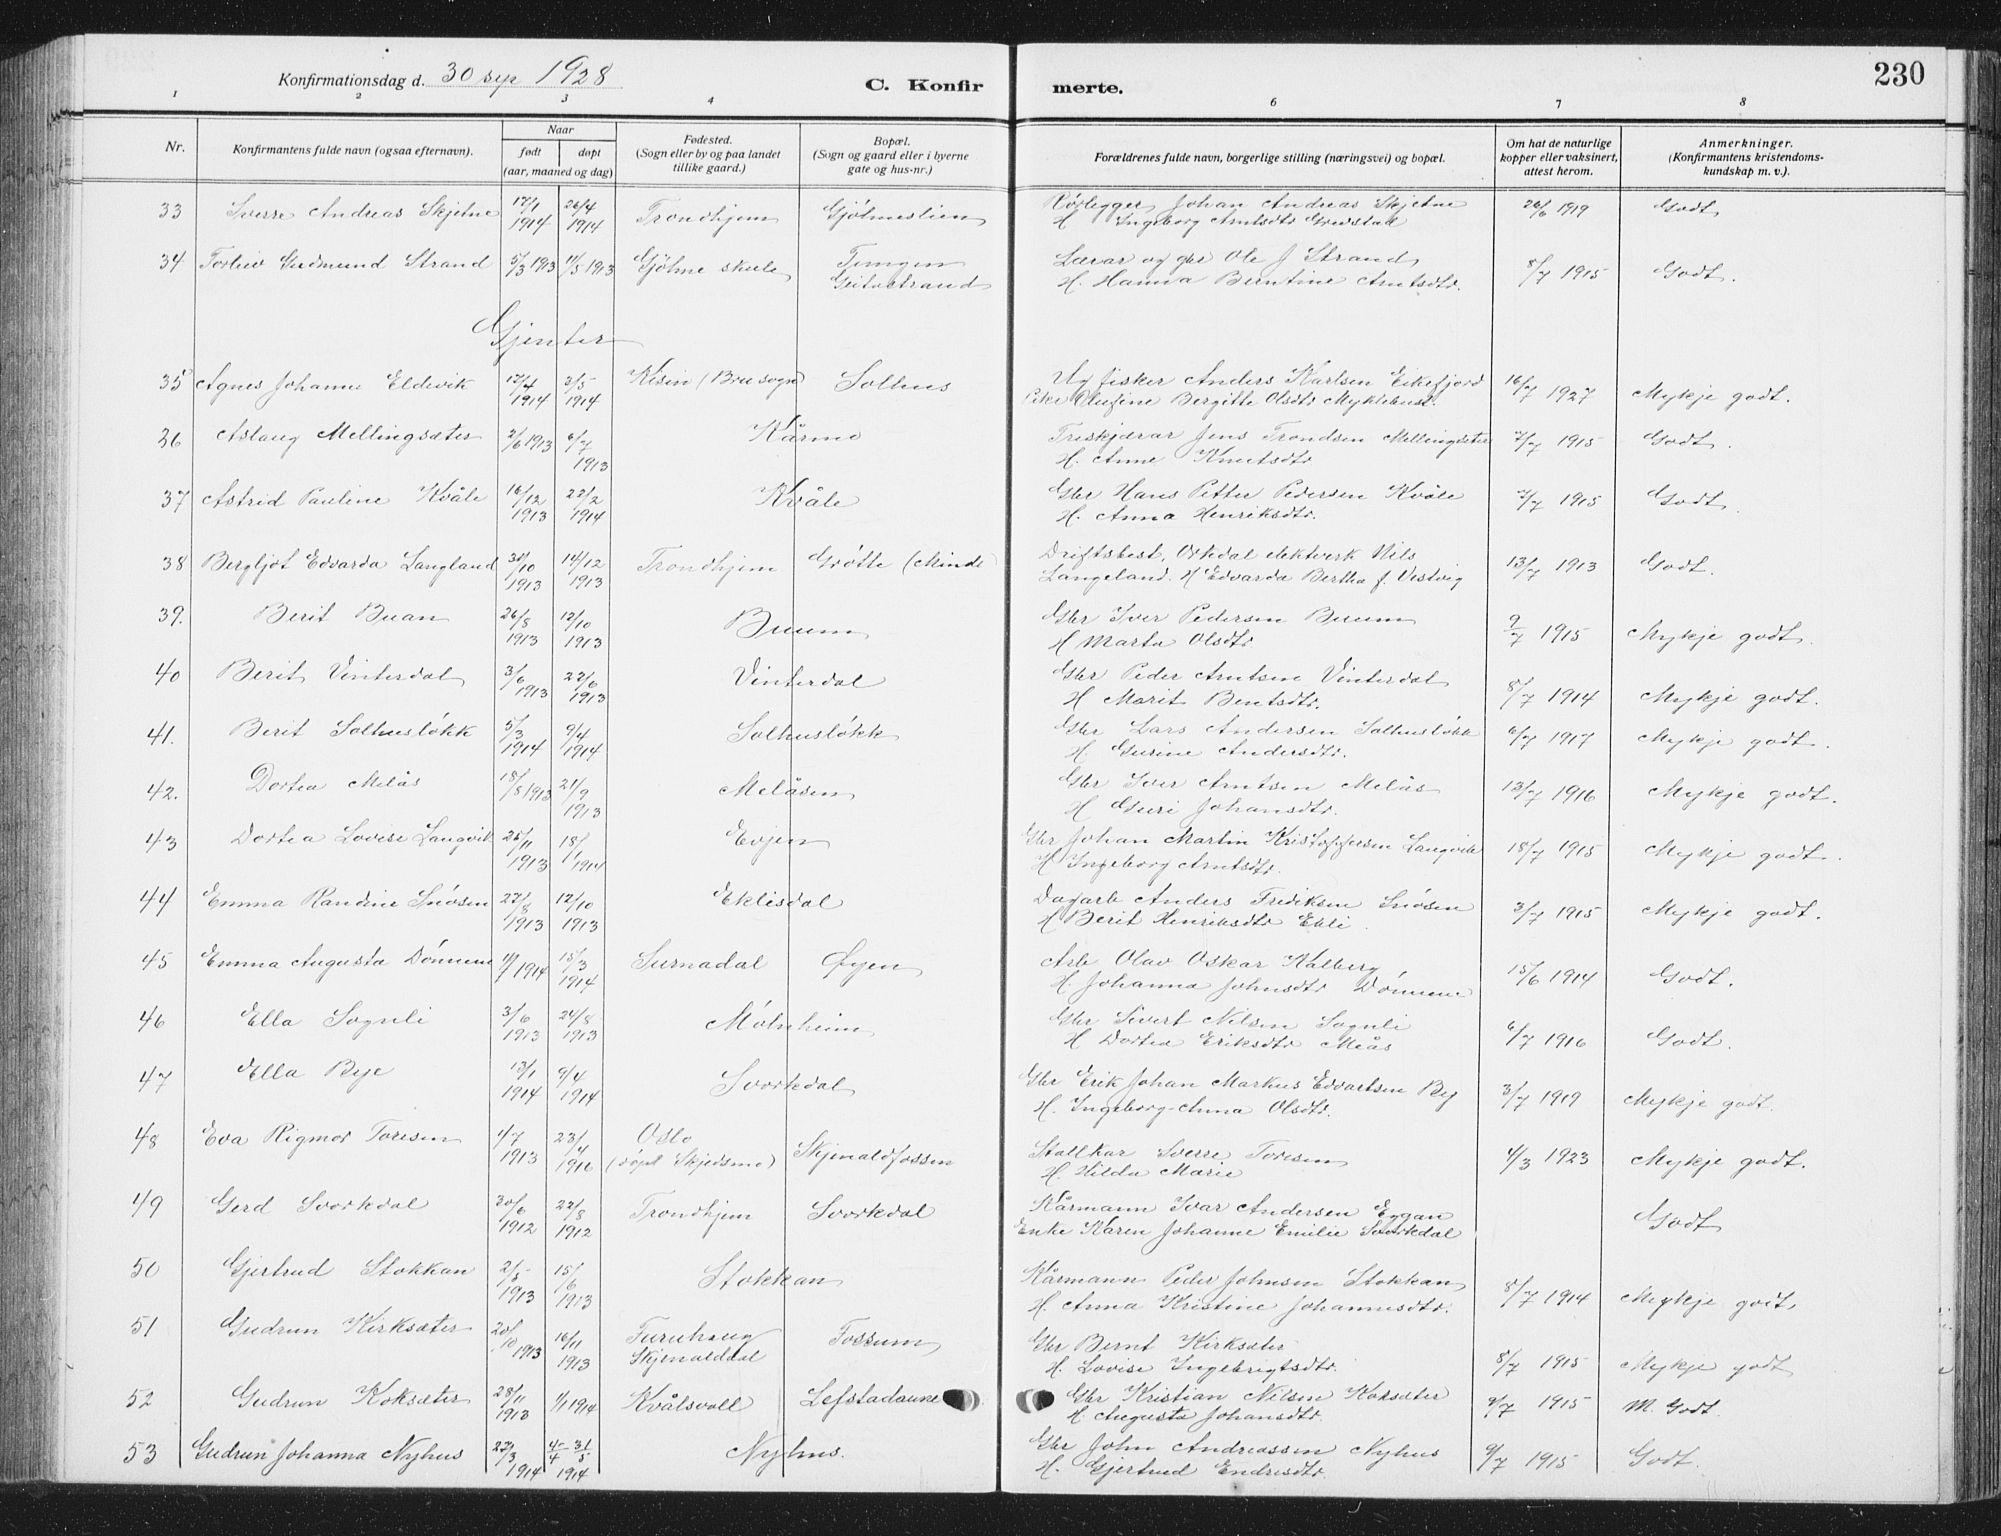 230
Konfirmationsdag d. 30 sep 1928
C. Konfir merte.
1 2 3 4 6 7 8
Nr.
Konfirmantens fulde navn (ogsaa efternavn).
Naar
født døpt
(aar, maaned og dag)
Fødested.
(Sogn eller by og paa landet
tillike gaard.)
Bopæl.
(Sogn og gaard eller i byerne
gate og hus-nr.)
Forældrenes fulde navn, borgerlige stilling (næringsvei) og bopæl.
Om hat de naturlige
kopper eller vaksinert,
attest herom.
Anmerkninger.
(Konfirmantens kristendoms-
kundskap m. v.).
33 Sverre Andreas Skjetne 17/1 1914 26/4 1914 Trondhjem Gjølmeslien Rørlegger Johan Andreas Skjetne 26/6 1919 Godt
H Ingeborg Arntsdtr
34 Torleiv Gudmund Strand 5/3 1913 11/5 1913 Gjølme skule Geitastrand Lærar og gbr Ole J Strand 8/7 1915 Godt.
H. Hanna Berntine Arntsdtr.
Gjenter
35 Agnes Johanne Eldevik 17/4 1914 3/5 1914 (Bru sogn) Solhus Ug fisker Anders Karlsen Eikefjord 16/7 1927 Mykje godt.
Pike Olufine Bergitte Olsdtr Myklebust.
36 Aslaug Mellingsæter 2/6 1913 6/7 1913 Kårmo Treskjærar Jens Trondsen Mellingsæter 7/7 1915 Godt.
H. Anne Knutsdtr
37 Astrid Pauline Kvåle 16/12 1913 22/2 1914 Kvåle Gbr Hans Petter Pedersen Kvåle 7/7 1915 Godt.
H. Anna Henriksdtr.
38 Bergljot Edvarda Langland 30/10 1913 14/12 1913 Trondhjem Grøtte (Minde) Driftsbest. Orkdal elektverk Nils 13/7 1913 Godt.
Langeland. H Edvarda Bertha f. Vestvig
39. Berit Buan 26/8 1913 12/10 1913 Buum Gbr Iver Pedersen Buum 9/7 1915 Mykje godt.
H Marta Olsdtr
40 Berit Vinterdal 3/6 1913 22/6 1913 Vinterdal Gbr Peder Arntsen Vinterdal 8/7 1914 Mykje godt.
H Marit Bentsdtr.
41. Berit Solhusløkk 5/3 1914 9/4 1914 Solhusløkk Gbr Lars Andersen Solhusløkk 6/7 1917 Mykje godt.
H Gurine Andersdtr.
42. Dortea Melås 18/8 1913 21/9 1913 Melåsen Gbr Iver Arntsen Melås 13/7 1916 Mykje godt.
H Guri Johansdtr.
43 Dortea Lovise Langvik 25/11 1913 18/1 1914 Evjen Gbr Johan Martin Kristoffersen Langvik 18/7 1915 Mykje godt.
H Ingeborg Arntsdtr.
44 Emma Randine Snøsen 27/8 1913 12/10 1913 Eklisdal Dagarb Anders Fredriksen Snøsen 3/7 1915 Mykje godt.
H Berit Henriksdtr Ekli.
45 Emma Augusta Dønnem 1914 15/3 1914 Surnadal Øyen Arb Olav Oskar Kalberg 15/6 1914 Godt.
H. Johanna Johnsdtr Dønnem
46 Ella Sognli 3/6 1913 24/8 1913 Mølnheim Gbr Sivert Nilsen Sognli 6/7 1916 Godt.
H Dortea Eriksdtr Meås
47 Ella Bye 13/1 1914 9/4 1914 Svorkdal Gbr Erik Johan Markus Edvartsen By 3/7 1919 Mykje godt.
H. Ingeborg Anna Olsdtr.
48 Eva Rigmor Toresen 4/7 1913 23/4 1916 Oslo (døpt Skjedsmo) Skjenaldfossen Stallkar Sverre Toresen 4/3 1923 Mykje godt.
H. Hilda Marie
49 Gerd Svorkdal 30/6 1912 22/8 1912 Trondhjem Svorkdal Kårmann Ivar Andersen Eggan Godt
Enke Karen Johanne Emilie Svorkdal
50 Gjertrud Stokkan 2/5 1913 15/6 1913 Stokkan Kårmann Peder Johnsen Stokkan 8/7 1914 Mykje godt
H. Anna Kristine Johannesdtr.
51 Gudrun Kirksæter 20/10 1913 16/11 1913 Furuhaug Skjenalddal Fossum Gbr Bernt Kirksæter 8/7 1915 Mykje godt
H. Lovise Ingebrigtsdtr.
52 Gudrun Koksæter 28/11 1913 1/1 1914 Kvålsvoll Lefstadaune Gbr Kristian Nilsen Koksæter 9/7 1915 M. Godt.
H Augusta Johansdtr.
53 Gudrun Johanna Nyhus 27/3 1914 31/5 1914 Nyhus. Gbr John Andreassen Nyhus 9/7 1915 Godt.
H. Gjertrud Endresdtr.